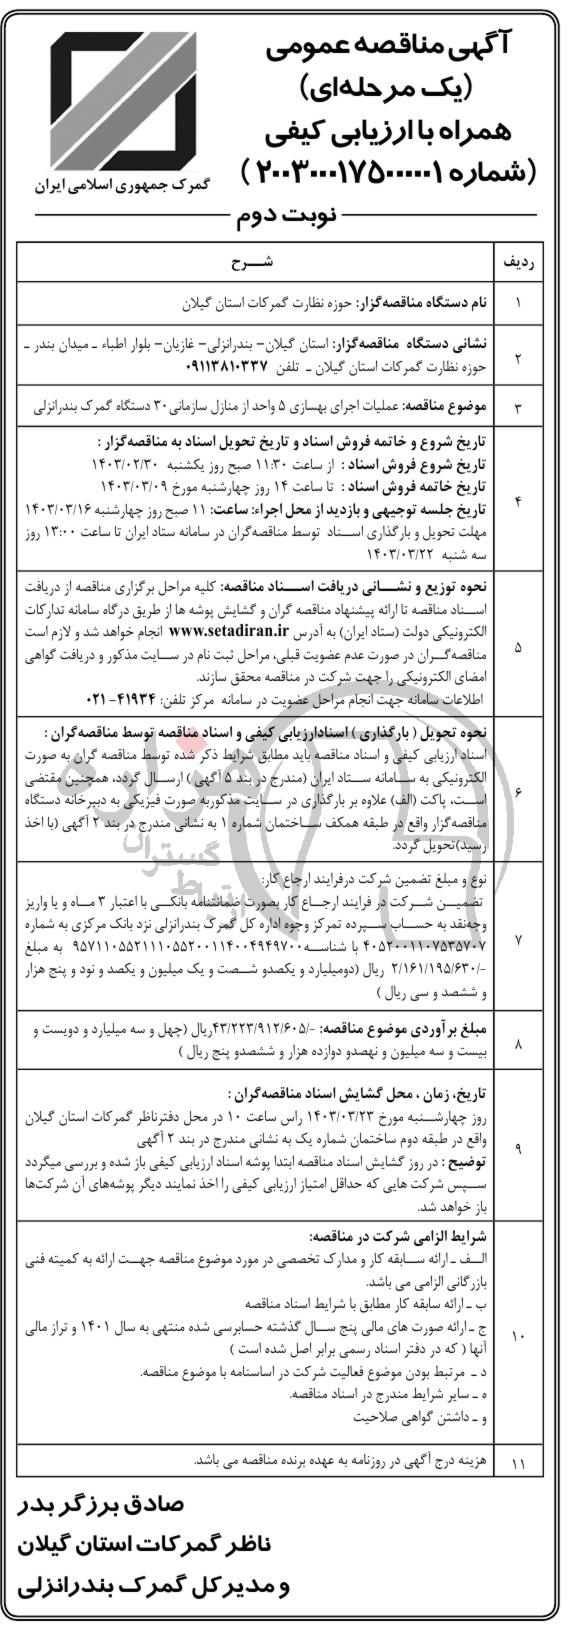 آگهی مناقصه عمومی
(یک مرحله‌ای)
همراه با ارزیابی کیفی
(شماره ۲۰۰۳۰۰۰۱۷۵۰۰۰۰۰۱)
گمرک جمهوری اسلامی ایران
نوبت دوم
ردیف
شـــرح
۱
نام دستگاه مناقصه‌گزار: حوزه نظارت گمرکات استان گیلان
۲
نشانی دستگاه مناقصه‌گزار: استان گیلان- بندرانزلی- غازیان- بلوار اطباء ـ میدان بندر ـ
حوزه نظارت گمرکات استان گیلان ـ تلفن ۰۹۱۱۳۸۱۰۳۳۷
۳
موضوع مناقصه: عملیات اجرای بهسازی ۵ واحد از منازل سازمانی۳۰ دستگاه گمرک بندرانزلی
۴
تاریخ شروع و خاتمه فروش اسناد و تاریخ تحویل اسناد به مناقصه‌گزار :
تاریخ شروع فروش اسناد : از ساعت ۱۱:۳۰ صبح روز یکشنبه ۱۴۰۳/۰۲/۳۰
تاریخ خاتمه فروش اسناد : تا ساعت ۱۴ روز چهارشنبه مورخ ۱۴۰۳/۰۳/۰۹
تاریخ جلسه توجیهی و بازدید از محل اجراء: ساعت: ۱۱ صبح روز چهارشنبه ۱۴۰۳/۰۳/۱۶
مهلت تحویل و بارگذاری اسناد توسط مناقصه‌گران در سامانه ستاد ایران تا ساعت ۱۳:۰۰ روز
سه شنبه ۱۴۰۳/۰۳/۲۲
۵
نحوه توزیع و نشـــانی دریافت اســـناد مناقصه: کلیه مراحل برگزاری مناقصه از دریافت
اسـناد مناقصه تا ارائه پیشنهاد مناقصه گران و گشایش پوشه ها از طریق درگاه سامانه تدارکات
الکترونیکی دولت (ستاد ایران) به آدرس www.setadiran.ir انجام خواهد شد و لازم است
مناقصه‌گـران در صورت عدم عضویت قبلی، مراحل ثبت نام در سـایت مذکور و دریافت گواهی
امضای الکترونیکی را جهت شرکت در مناقصه محقق سازند.
اطلاعات سامانه جهت انجام مراحل عضویت در سامانه مرکز تلفن: ۴۱۹۳۴-۰۲۱
۶
نحوه تحویل ( بارگذاری ) اسنادارزیابی کیفی و اسناد مناقصه توسط مناقصه‌گران :
اسناد ارزیابی کیفی و اسناد مناقصه باید مطابق شرایط ذکر شده توسط مناقصه گران به صورت
الکترونیکی به ســامانه ستاد ایران (مندرج در بند ۵ آگهی ) ارسـال گردد، همچنین مقتضی
است، پاکت (الف) علاوه بر بارگذاری در سـایت مذکوربه صورت فیزیکی به دبیرخانه دستگاه
مناقصه‌گزار واقع در طبقه همکف سـاختمان شماره ۱ به نشانی مندرج در بند ۲ آگهی (با اخذ
رسید)تحویل گردد.
۷
نوع و مبلغ تضمین شرکت درفرایند ارجاع کار:
تضمیـن شـرکت در فرایند ارجـاع کار بصورت ضمانتنامه بانکـی با اعتبار ۳ ماه و یا واریز
وجه‌نقد به حساب سـپرده تمرکز وجوه اداره کل گمرک بندرانزلی نزد بانک مرکزی به شماره
۴۰۵۲۰۰۱۱۰۷۵۳۵۷۰۷ با شناسه ۹۵۷۱۱۰۵۵۲۱۱۱۰۵۵۲۰۰۱۱۴۰۰۴۹۴۹۷۰۰ به مبلغ
۲/۱۶۱/۱۹۵/۶۳۰/- ریال (دومیلیارد و یکصدو شـصت و یک میلیون و یکصد و نود و پنج هزار
و ششصد و سی ریال )
۸
مبلغ برآوردی موضوع مناقصه: -/۴۳/۲۲۳/۹۱۲/۶۰۵ریال (چهل و سه میلیارد و دویست و
بیست و سه میلیون و نهصدو دوازده هزار و ششصدو پنج ریال )
۹
تاریخ، زمان ، محل گشایش اسناد مناقصه‌گران :
روز چهارشـنبه مورخ ۱۴۰۳/۰۳/۲۳ راس ساعت ۱۰ در محل دفترناظر گمرکات استان گیلان
واقع در طبقه دوم ساختمان شماره یک به نشانی مندرج در بند ۲ آگهی
توضیح : در روز گشایش اسناد مناقصه ابتدا پوشه اسناد ارزیابی کیفی باز شده و بررسی میگردد
سـپس شرکت هایی که حداقل امتیاز ارزیابی کیفی را اخذ نمایند دیگر پوشه‌های آن شرکت‌ها
باز خواهد شد.
۱۰
شرایط الزامی شرکت در مناقصه:
الـف ـ ارائه سـابقه کار و مدارک تخصصی در مورد موضوع مناقصه جهـت ارائه به کمیته فنی
بازرگانی الزامی می باشد.
ب ـ ارائه سابقه کار مطابق با شرایط اسناد مناقصه
ج ـ ارائه صورت های مالی پنج سـال گذشته حسابرسی شده منتهی به سال ۱۴۰۱ و تراز مالی
آنها ( که در دفتر اسناد رسمی برابر اصل شده است )
د ـ مرتبط بودن موضوع فعالیت شرکت در اساسنامه با موضوع مناقصه.
ه ـ سایر شرایط مندرج در اسناد مناقصه.
و ـ داشتن گواهی صلاحیت
۱۱
هزینه درج آگهی در روزنامه به عهده برنده مناقصه می باشد.
صادق برزگر بدر
ناظر گمرکات استان گیلان
و مدیرکل گمرک بندرانزلی
هزاره
گستران
ارتباط